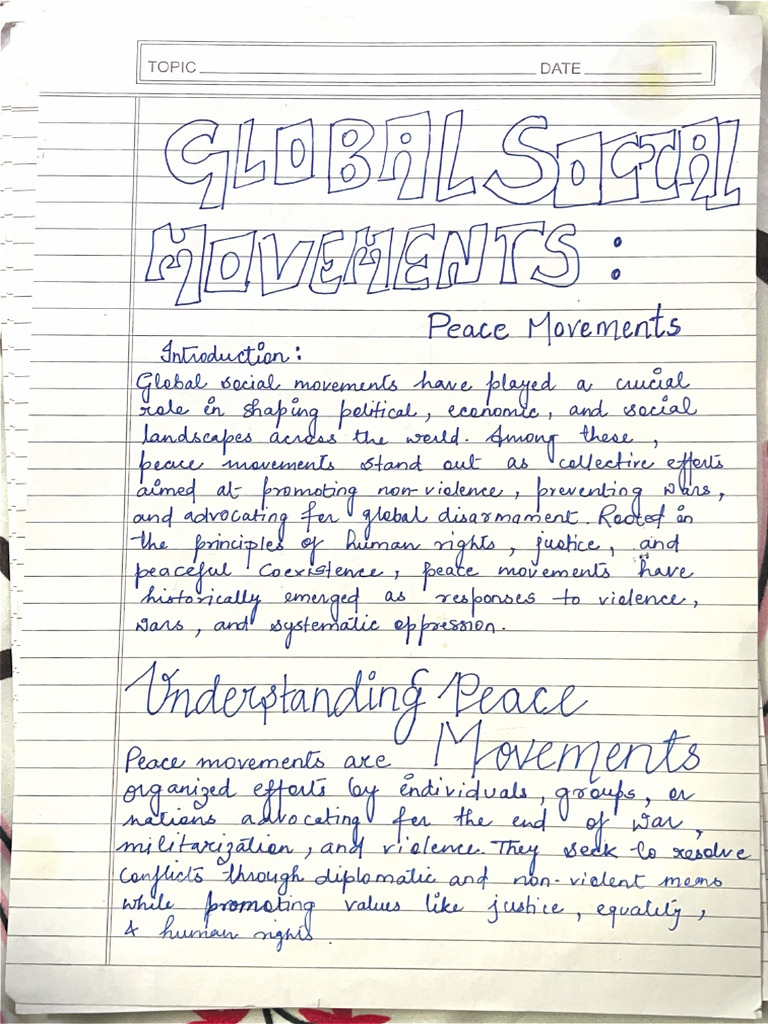 TOPIC DATE
GLOBAL SOCIAL
MOVEMENTS :
Peace Movements
Introduction :
Global social movements have played a crucial
role in shaping political, economic, and social
landscapes across the world. Among these,
peace movements stand out as collective efforts
aimed at promoting non-violence, preventing wars,
and advocating for global disarmament. Rooted in
the principles of human rights, justice, and
peaceful coexistence, peace movements have
historically emerged as responses to violence,
wars, and systematic oppression.
Understanding Peace
Movements
Peace movements are
organized efforts by individuals, groups, or
nations advocating for the end of war,
militarization, and violence. They seek to resolve
conflicts through diplomatic and non-violent mems
while promoting values like justice, equality,
& human rights